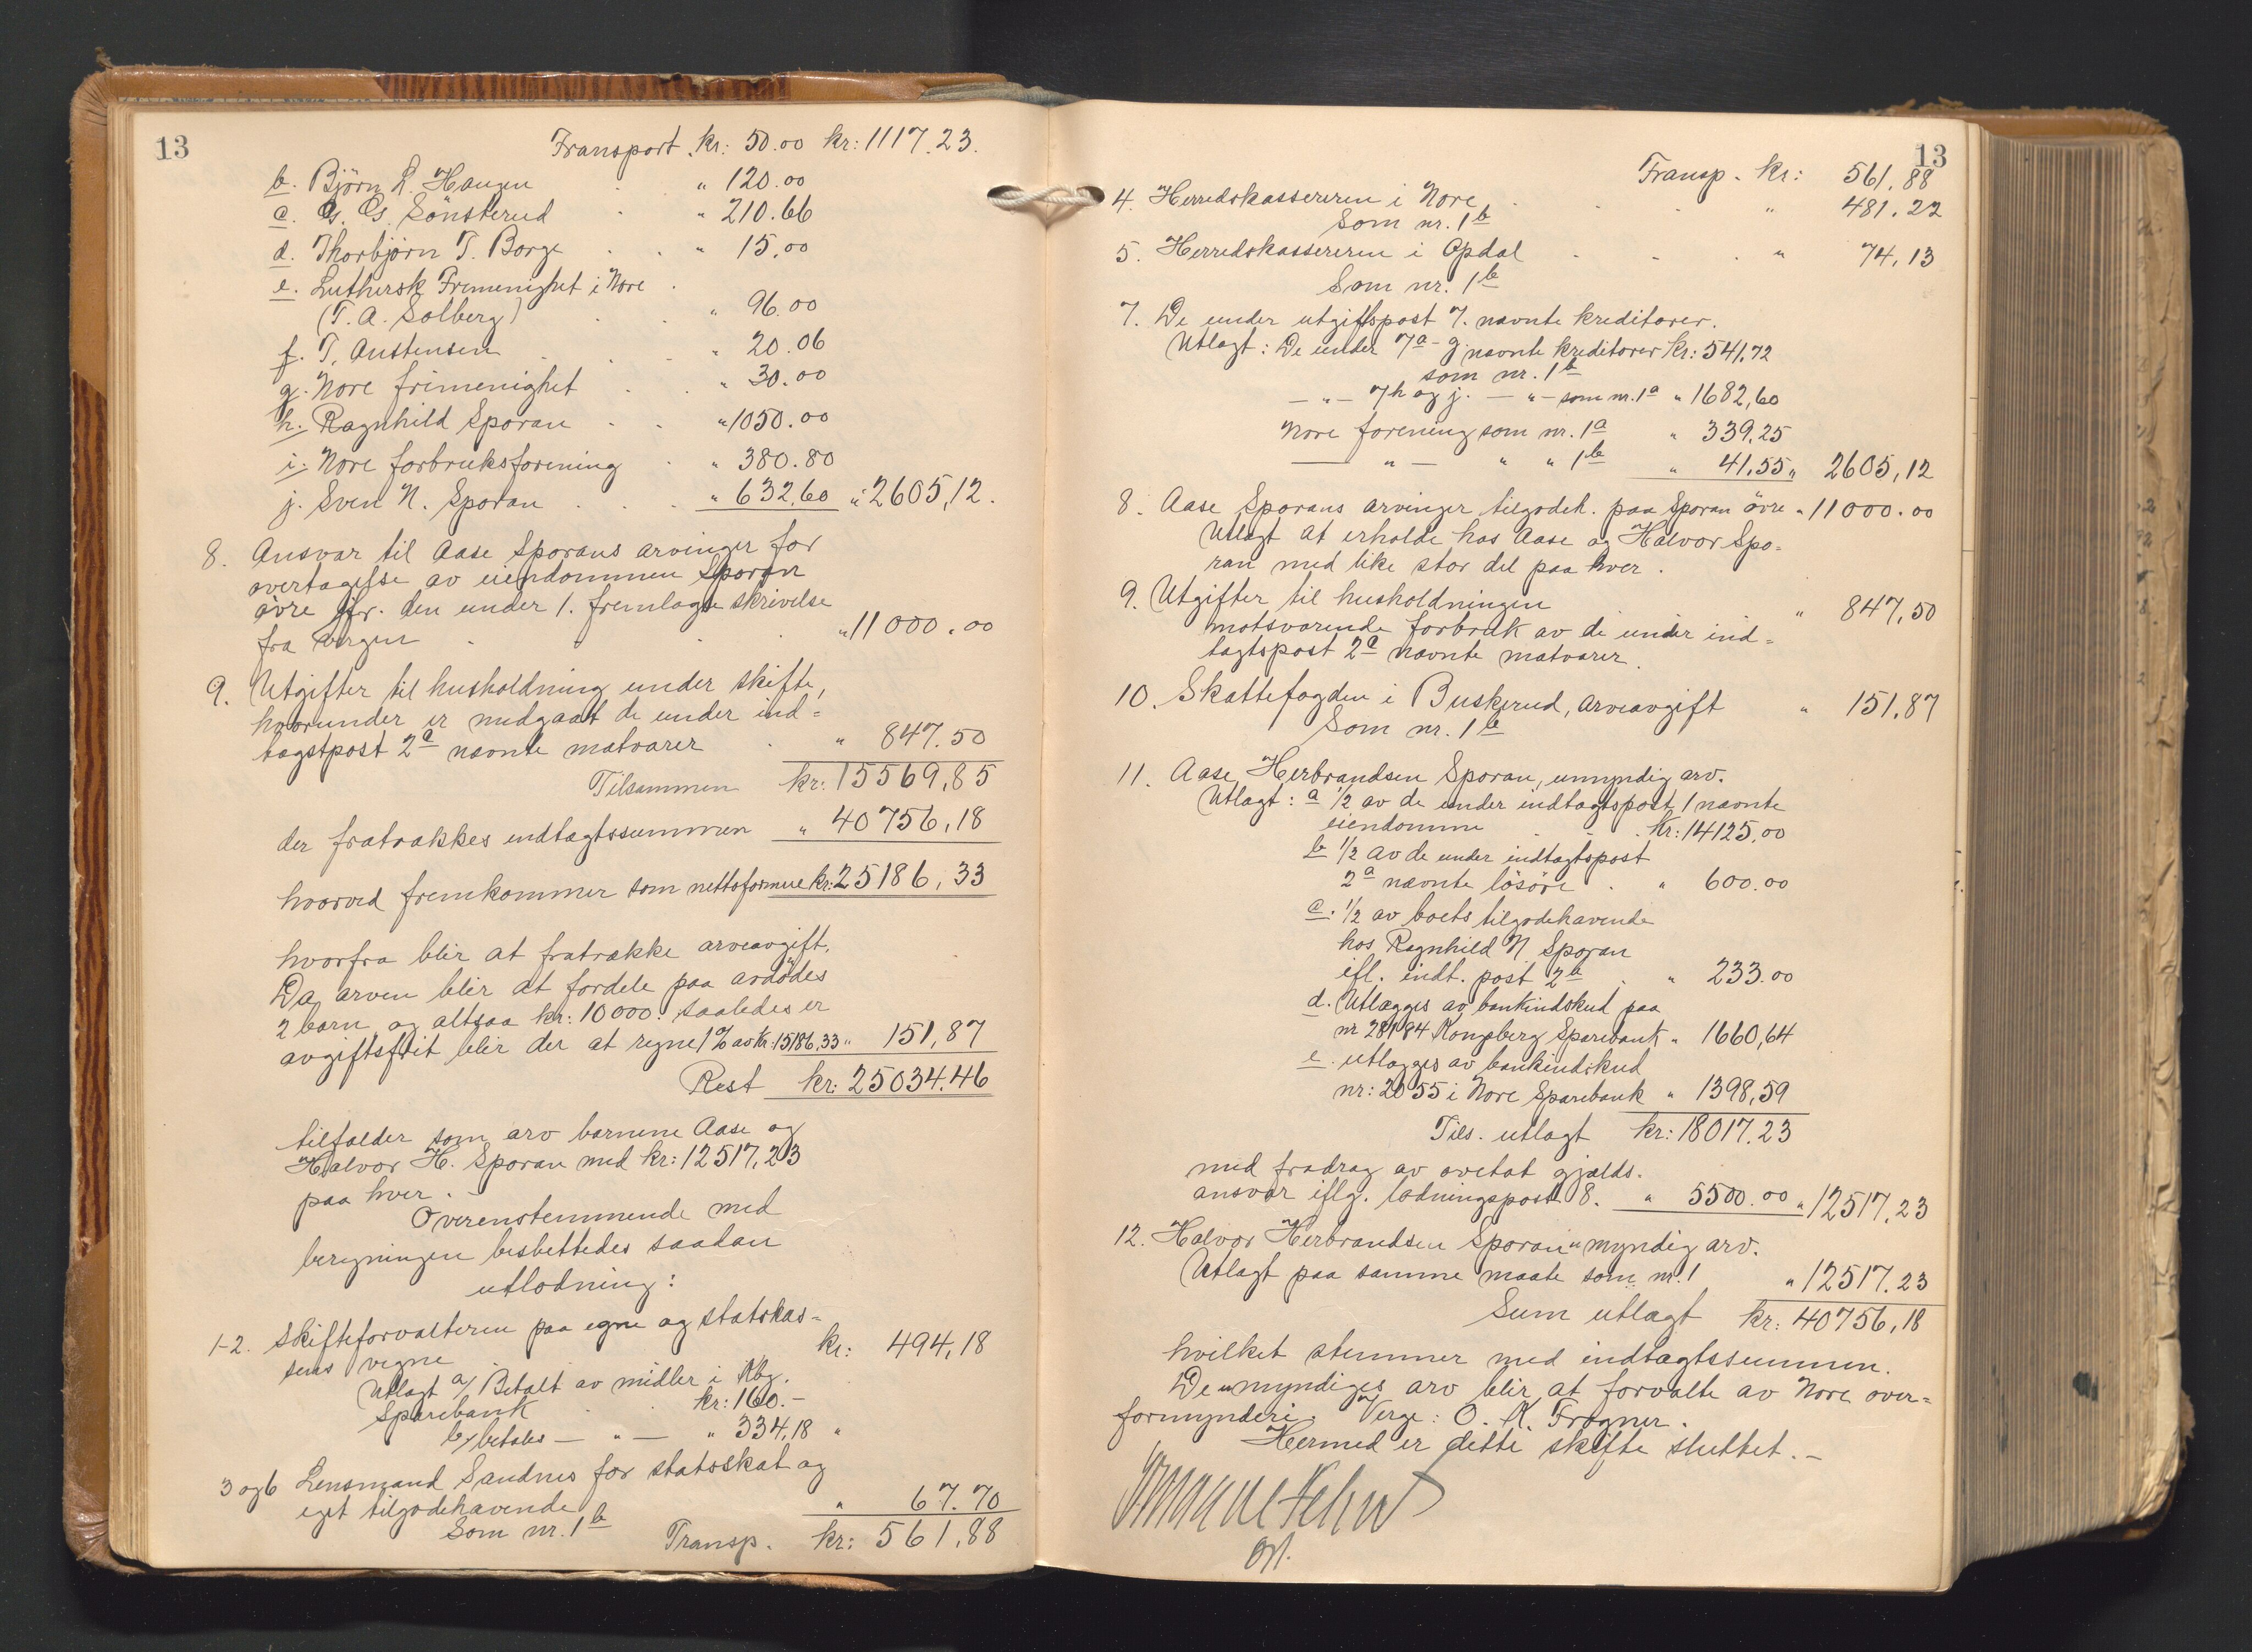 13
Transport. kr: 50.00 kr: 1117.23.
b. Björn L. Haugen " 120.00
c. G. G. Sönsterud " 210.66
d. Thorbjörn T. Borge " 15.00
e. Luthersk Frimenighet i Nore
(T. A. Solberg) " 96.00
f. T. Austensen " 20.06
g. Nore frimenighet " 30.00
h. Ragnhild Sporan " 1050.00
i. Nore forbruksforening " 380.80
j. Sven N. Sporan " 632,60 " 2605,12.
8. Ansvar til Aase Sporans arvinger for
overtagelse av eiendommen Sporan
övre jfr. den under 1. fremlagte skrivelse
fra vergen " 11000.00
9. Utgifter til husholdning under skifte,
hvorunder er medgaat de under ind=
tægtspost 2a nævnte matvarer " 847.50
Tilsammen kr: 15569,85
der fratrækkes indtægtssummen " 40756,18
hvorved fremkommer som nettoformue kr: 25186,33
hvorfra blir at fratrække arveavgift.
Da arven blir at fordele paa avdödes
2 barn og altsaa kr: 10000: saaledes er
avgiftsfrit blir der at regne 1% av kr: 15186,33 " 151,87
Rest kr: 25034.46
tilfalder som arv barnene Aase og
Halvor H. Sporan med kr: 12517,23
paa hver.
Overenstemmende med
beregningen besluttedes saadan
utlodning:
1-2. Skifteforvalteren paa egne og statskas=
sens vegne kr: 494,18
Utlagt a/ Betalt av midler i Kbg.
Sparebank kr: 160.-
b/ betales — " — " 334,18 "
3 og 6 Lensmand Sandnes for statsskat og
eget tilgodehavende " 67.70
Som nr. 1b
Transp. kr: 561,88
13
Transp. kr: 561,88
4. Herredskassereren i Nore " 481.22
Som nr. 1b
5. Herredskassereren i Opdal " 74,13
Som nr. 1b
7. De under utgiftspost 7. nævnte kreditorer.
Utlagt: De under 7a-g nævnte kreditorer kr: 541,72
som nr. 1b
— " — 7h og j. — " — som nr. 1a " 1682,60
Nore forening som nr. 1a " 339.25
— " — " " 1b " 41.55 " 2605,12
8. Aase Sporans arvinger tilgodeh. paa Sporan övre " 11000.00
Utlagt at erholde hos Aase og Halvor Spo=
ran med like stor del paa hver.
9. Utgifter til husholdningen " 847,50
motsvarende forbruk av de under ind=
tægtspost 2a nævnte matvarer.
10. Skattefogden i Buskerud, arveavgift " 151,87
Som nr. 1b
11. Aase Herbrandsen Sporan, umyndig arv.
Utlagt: a 1/2 av de under indtægtspost 1 nævnte
eiendomme kr: 14125.00
b 1/2 av de under indtægtspost
2a nævnte lösöre " 600.00
c. 1/2 av boets tilgodehavende
hos Ragnhild N. Sporan
ifl. indt. post 2b " 233.00
d. Utlægges av bankindskud paa
nr 28184 Kongsberg Sparebank " 1660,64
e. utlægges av bankindskud
nr: 2055 i Nore Sparebank " 1398,59
Tils. utlagt kr: 18017.23
med fradrag av overtat gjælds-
ansvar iflg. lodningspost 8. " 5500.00 " 12517,23
12. Halvor Herbrandsen Sporan umyndig arv.
Utlagt paa samme maate som nr. 1 " 12517.23
Sum utlagt kr: 40756,18
hvilket stemmer med indtægtssummen.
De umyndiges arv blir at forvalte av Nore over=
formynderi. Verge: O. K. Frogner.
Hermed er dette skifte sluttet. –